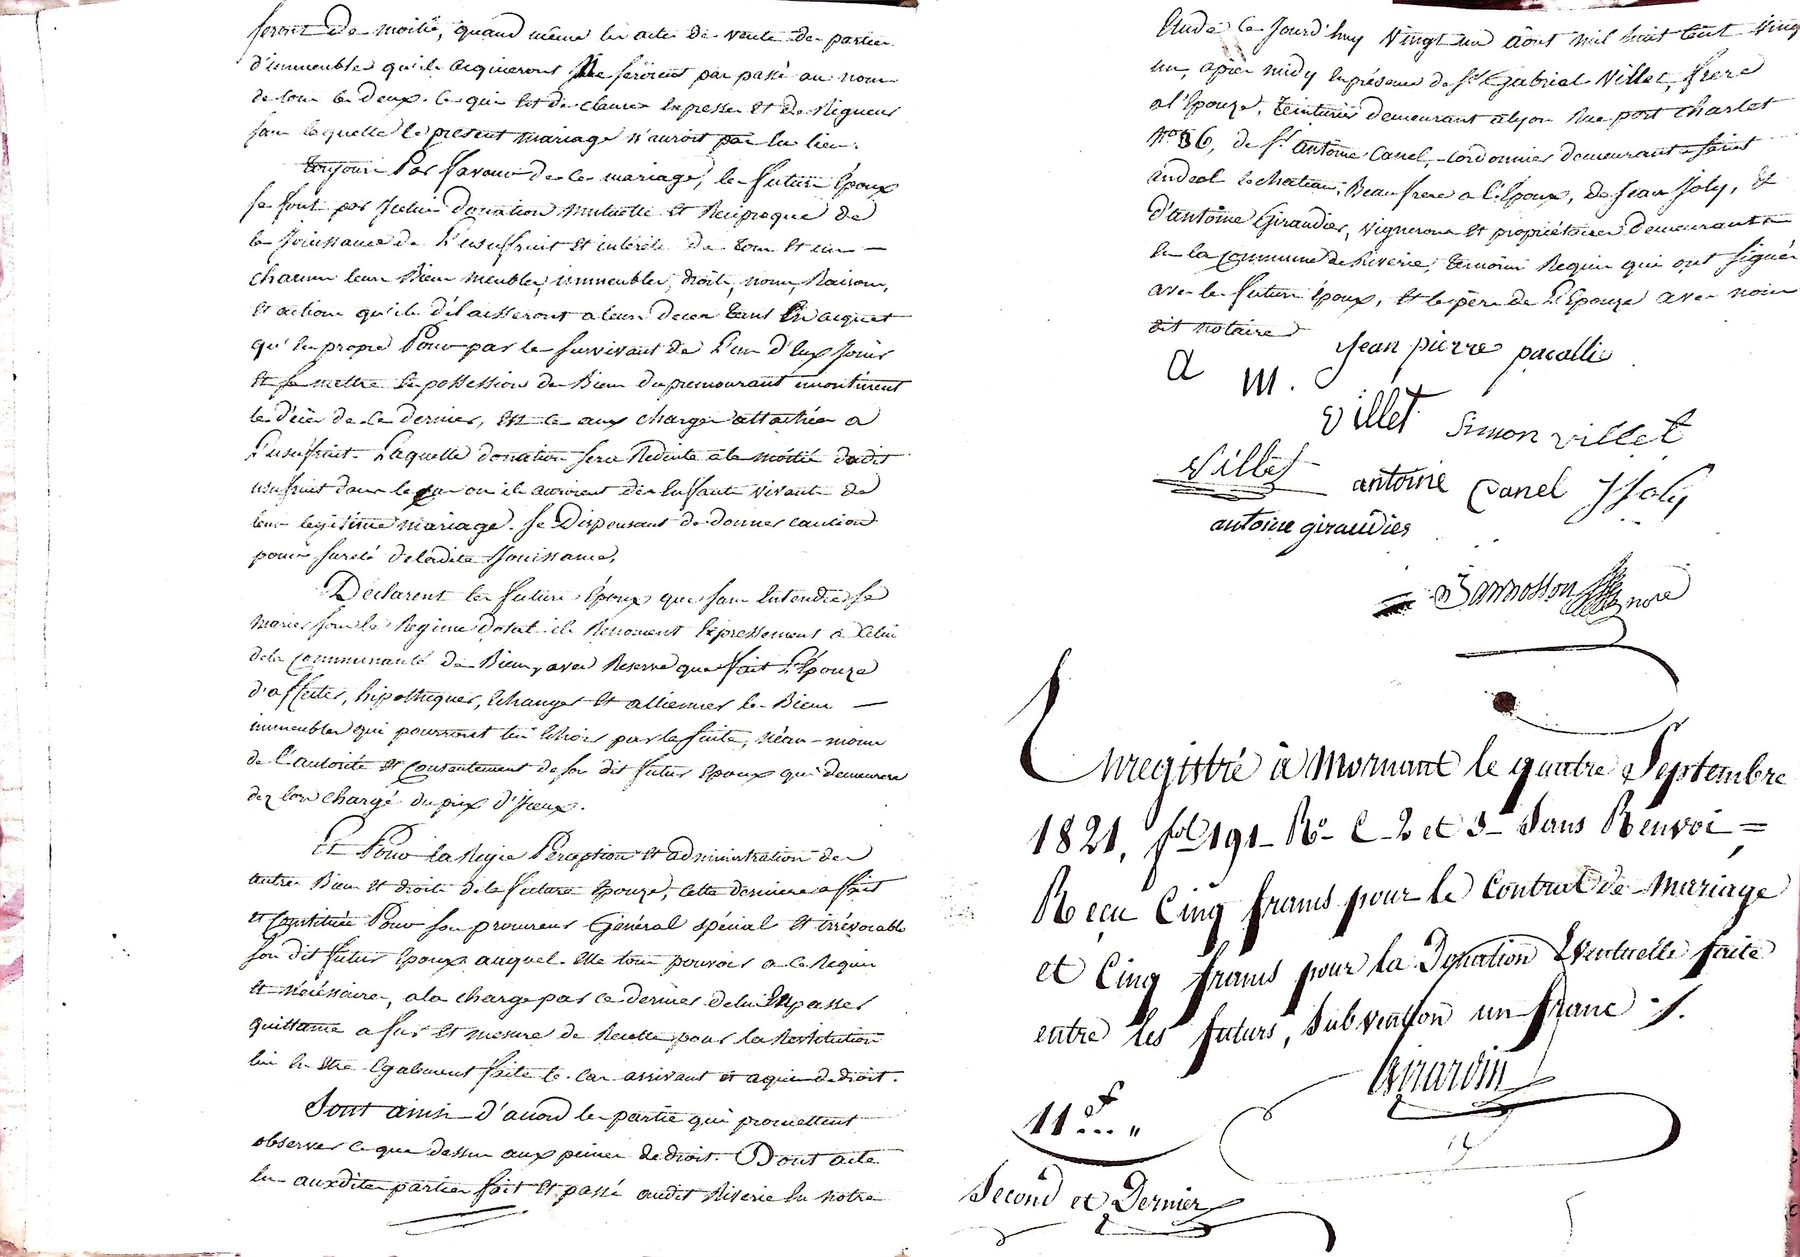 seront de moitié, quand même les actes de vente des parties
d'immeubles qu'ils acquereront ne seroient pas passé au nom
de tous les deux. Ce qui est de clause expresse et de rigueur
sans laquelle le présent mariage n'auroit pas eu lieu.
toujours Par faveur de ce mariage, les futurs Epoux
se font par Icelui donation mutuelle et réciproque de
la Jouissance de l'usufruit et intérêts de tous et un
chacun leurs Biens meubles, immeubles, droits, noms, Raisons,
et actions qu'ils délaisseront a leurs deces tant En acquet
qu'en propre Pour par le survivant de l'un d'Eux Jouir
et se mettre en possession des Biens du premourant
le décès de ce dernier, et ce aux charges attachées a
l'usufruit. Laquelle donation sera Réduite à la moitié dudit
usufruit dans le cas ou ils auroient des Enfants vivants de
leur légitime mariage. se Dispensant de donner caution
pour sureté de ladite Jouissance.
Déclarent les futurs Epoux que sans Entendre se
marier sous le Regime dotal ils Renoncent Expressement a Celui
de la Communauté de Biens, avec Reserve que fait l'Epouze
d'affecter, hipothequer, Echanger et alliener les Biens
immeubles qui pourront lui Echoir par la suite, néan-moins
de l'autorité et Consentement de son dit futur Epoux qui demeurera
dez lors chargé du prix d'Iceux.
Et Pour la Régie Perception et administration des
autres Biens et droits de la future Epouze, cette derniere a fait
et Constituée Pour son procureur Général spécial et irrévocable
son dit futur Epoux auquel Elle donne pouvoir a ce Requis
et nécéssaire, a la charge par ce dernier de lui En passer
quittance a fur et mesure de Recette pour la Restitution
lui En être Egalement faite le cas arrivant et a qui de droit.
Sont ainsi d'accord les parties qui promettent
observer ce que dessus aux peines de droit. Dont acte
lu auxdites parties fait et passé audit Riverie En notre
Etude Ce Jourd'huy vingt un août mil huit cent vingt
un, après midy En présence de Sr Gabriel Villet, frere
a l'Epouze, teinturier demeurant a lyon Rue port charlet
N° 36, de Sr antoine Canel, cordonnier demeurant a saint
andeol le chateau, Beau frere a l'Epoux, de Jean Joly, et
d'antoine Giraudier, vignerons et propriétaires demeurants
En la Commune de Riverie, temoins Requis qui ont signés
avec le futur Epoux, et le père de l'Epouze avec nous
dit notaire
a m. Jean pierre pacallie
villet Simon villet
Villet antoine Canel JJoly
antoine giraudier
Jannosson nore
Enregistré à Mornant le quatre Septembre
1821, fol 191 Ro C 2 et 3 Sans Renvoi =
Reçu Cinq francs pour le Contrat de Mariage
et Cinq francs pour la Donation Eventuelle faite
entre les futurs, Subvention un franc ./.
Girardin
11 f "
Second et Dernier